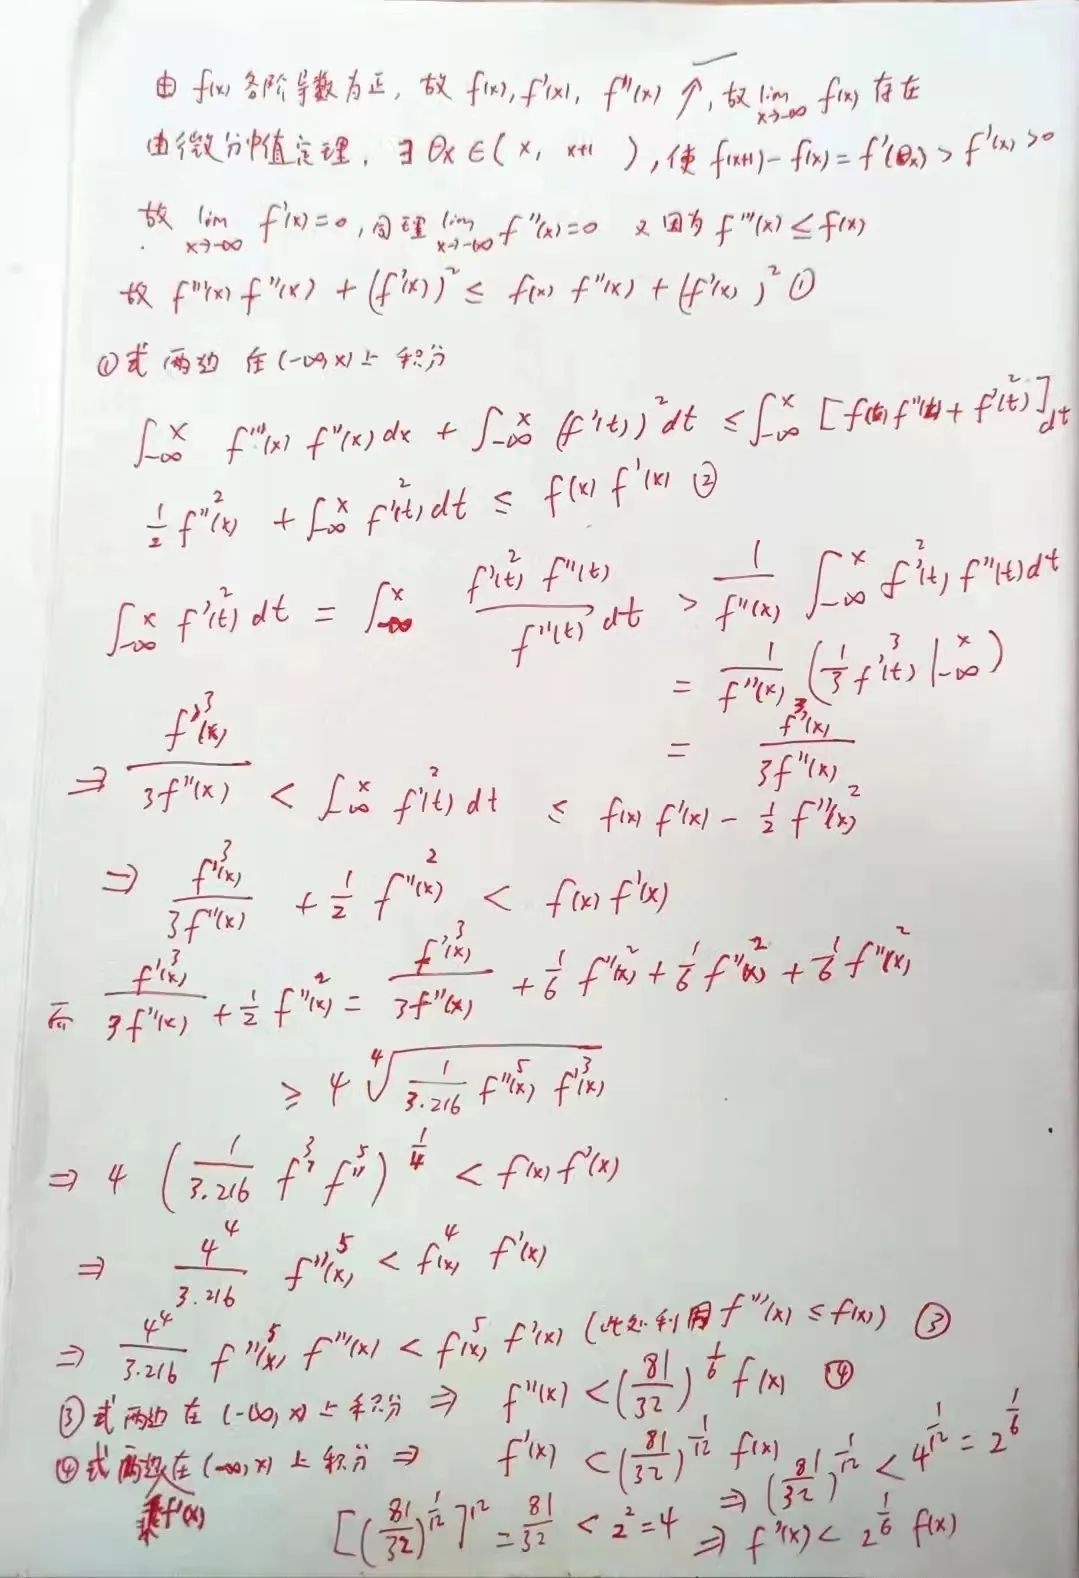 由 f(x) 各阶导数为正, 故 f(x), f'(x), f''(x) ↑, 故 lim_{x→-∞} f(x) 存在
由微分中值定理, ∃ θx ∈ ( x, x+1 ), 使 f(x+1) - f(x) = f'(θx) > f'(x) > 0
故 lim_{x→-∞} f'(x) = 0, 同理 lim_{x→-∞} f''(x) = 0 又因为 f'''(x) ≤ f(x)
故 f'''(x) f''(x) + (f'(x))^2 ≤ f(x) f''(x) + (f'(x))^2 ①
①式 两边 在 (-∞, x) 上 积分
∫_{-∞}^{x} f'''(x) f''(x) dx + ∫_{-∞}^{x} (f'(t))^2 dt ≤ ∫_{-∞}^{x} [f(t) f''(t) + f'(t)^2] dt
1/2 f''(x)^2 + ∫_{-∞}^{x} f'(t)^2 dt ≤ f(x) f'(x) ②
∫_{-∞}^{x} f'(t)^2 dt = ∫_{-∞}^{x} f'(t)^2 f''(t) / f''(t) dt > 1/f''(x) ∫_{-∞}^{x} f'(t)^2 f''(t) dt
= 1/f''(x) (1/3 f'(t)^3 |_{-∞}^{x})
= f'(x)^3 / 3f''(x)
⇒ f'(x)^3 / 3f''(x) < ∫_{-∞}^{x} f'(t)^2 dt ≤ f(x) f'(x) - 1/2 f''(x)^2
⇒ f'(x)^3 / 3f''(x) + 1/2 f''(x)^2 < f(x) f'(x)
而 f'(x)^3 / 3f''(x) + 1/2 f''(x)^2 = f'(x)^3 / 3f''(x) + 1/6 f''(x)^2 + 1/6 f''(x)^2 + 1/6 f''(x)^2
≥ 4 ∜(1/3·216 f''(x)^5 f'(x)^3)
⇒ 4 (1/3·216 f'^3 f''^5)^{1/4} < f(x) f'(x)
⇒ 4^4/3·216 f''(x)^5 < f(x)^4 f'(x)
⇒ 4^4/3·216 f''(x)^5 f'''(x) < f(x)^5 f'(x) (此处利用 f'''(x) ≤ f(x)) ③
③式两边在 (-∞, x) 上积分 ⇒ f''(x) < (81/32)^{1/6} f(x) ④
④式两边乘f'(x)在 (-∞, x) 上积分 ⇒ f'(x) < (81/32)^{1/12} f(x) ⇒ (81/32)^{1/12} < 4^{1/12} = 2^{1/6}
[(81/32)^{1/12}]^{12} = 81/32 < 2^2 = 4 ⇒ f'(x) < 2^{1/6} f(x)